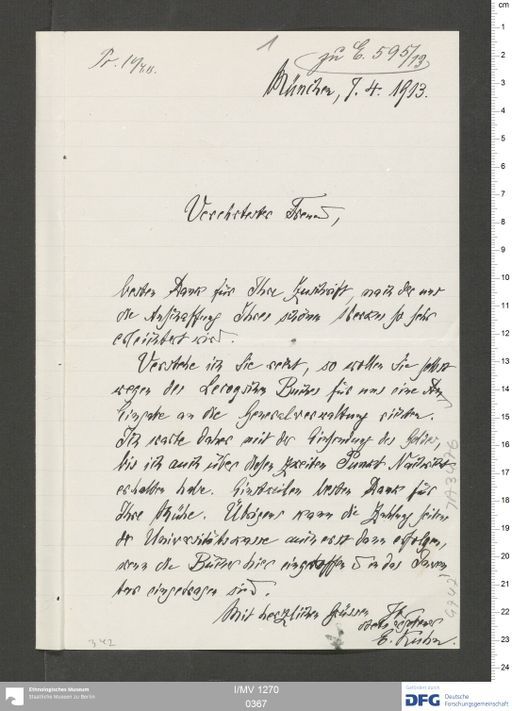 1
zu E. 595/13
München, 7. 4. 1913.
Verehrtester Freund,
besten Dank für Ihre Zuschrift, nach der uns
die Anschaffung Ihres schönen Werkes so sehr
erleichtert wird.
Verstehe ich Sie recht, so wollen Sie selbst
wegen des Lecoqschen Buches für uns eine
Eingabe an die Generalverwaltung richten.
Ich warte daher mit der Einsendung des Geldes,
bis ich auch über diesen zweiten Punkt Nachricht
erhalten habe. Einstweilen besten Dank für
Ihre Mühe. Übrigens kann die Zahlung seitens
der Universitätskasse auch erst dann erfolgen,
wenn die Bücher hier eingetroffen und in das Inven
tar eingetragen sind.
Mit herzlichen Grüssen Ihr
stets ergebener
E. Kuhn.
342
Ethnologisches Museum
Staatliche Museen zu Berlin
I/MV 1270
0367
Gefördert durch
DFG Deutsche
Forschungsgemeinschaft
cm
1
2
3
4
5
6
7
8
9
10
11
12
13
14
15
16
17
18
19
20
21
22
23
24